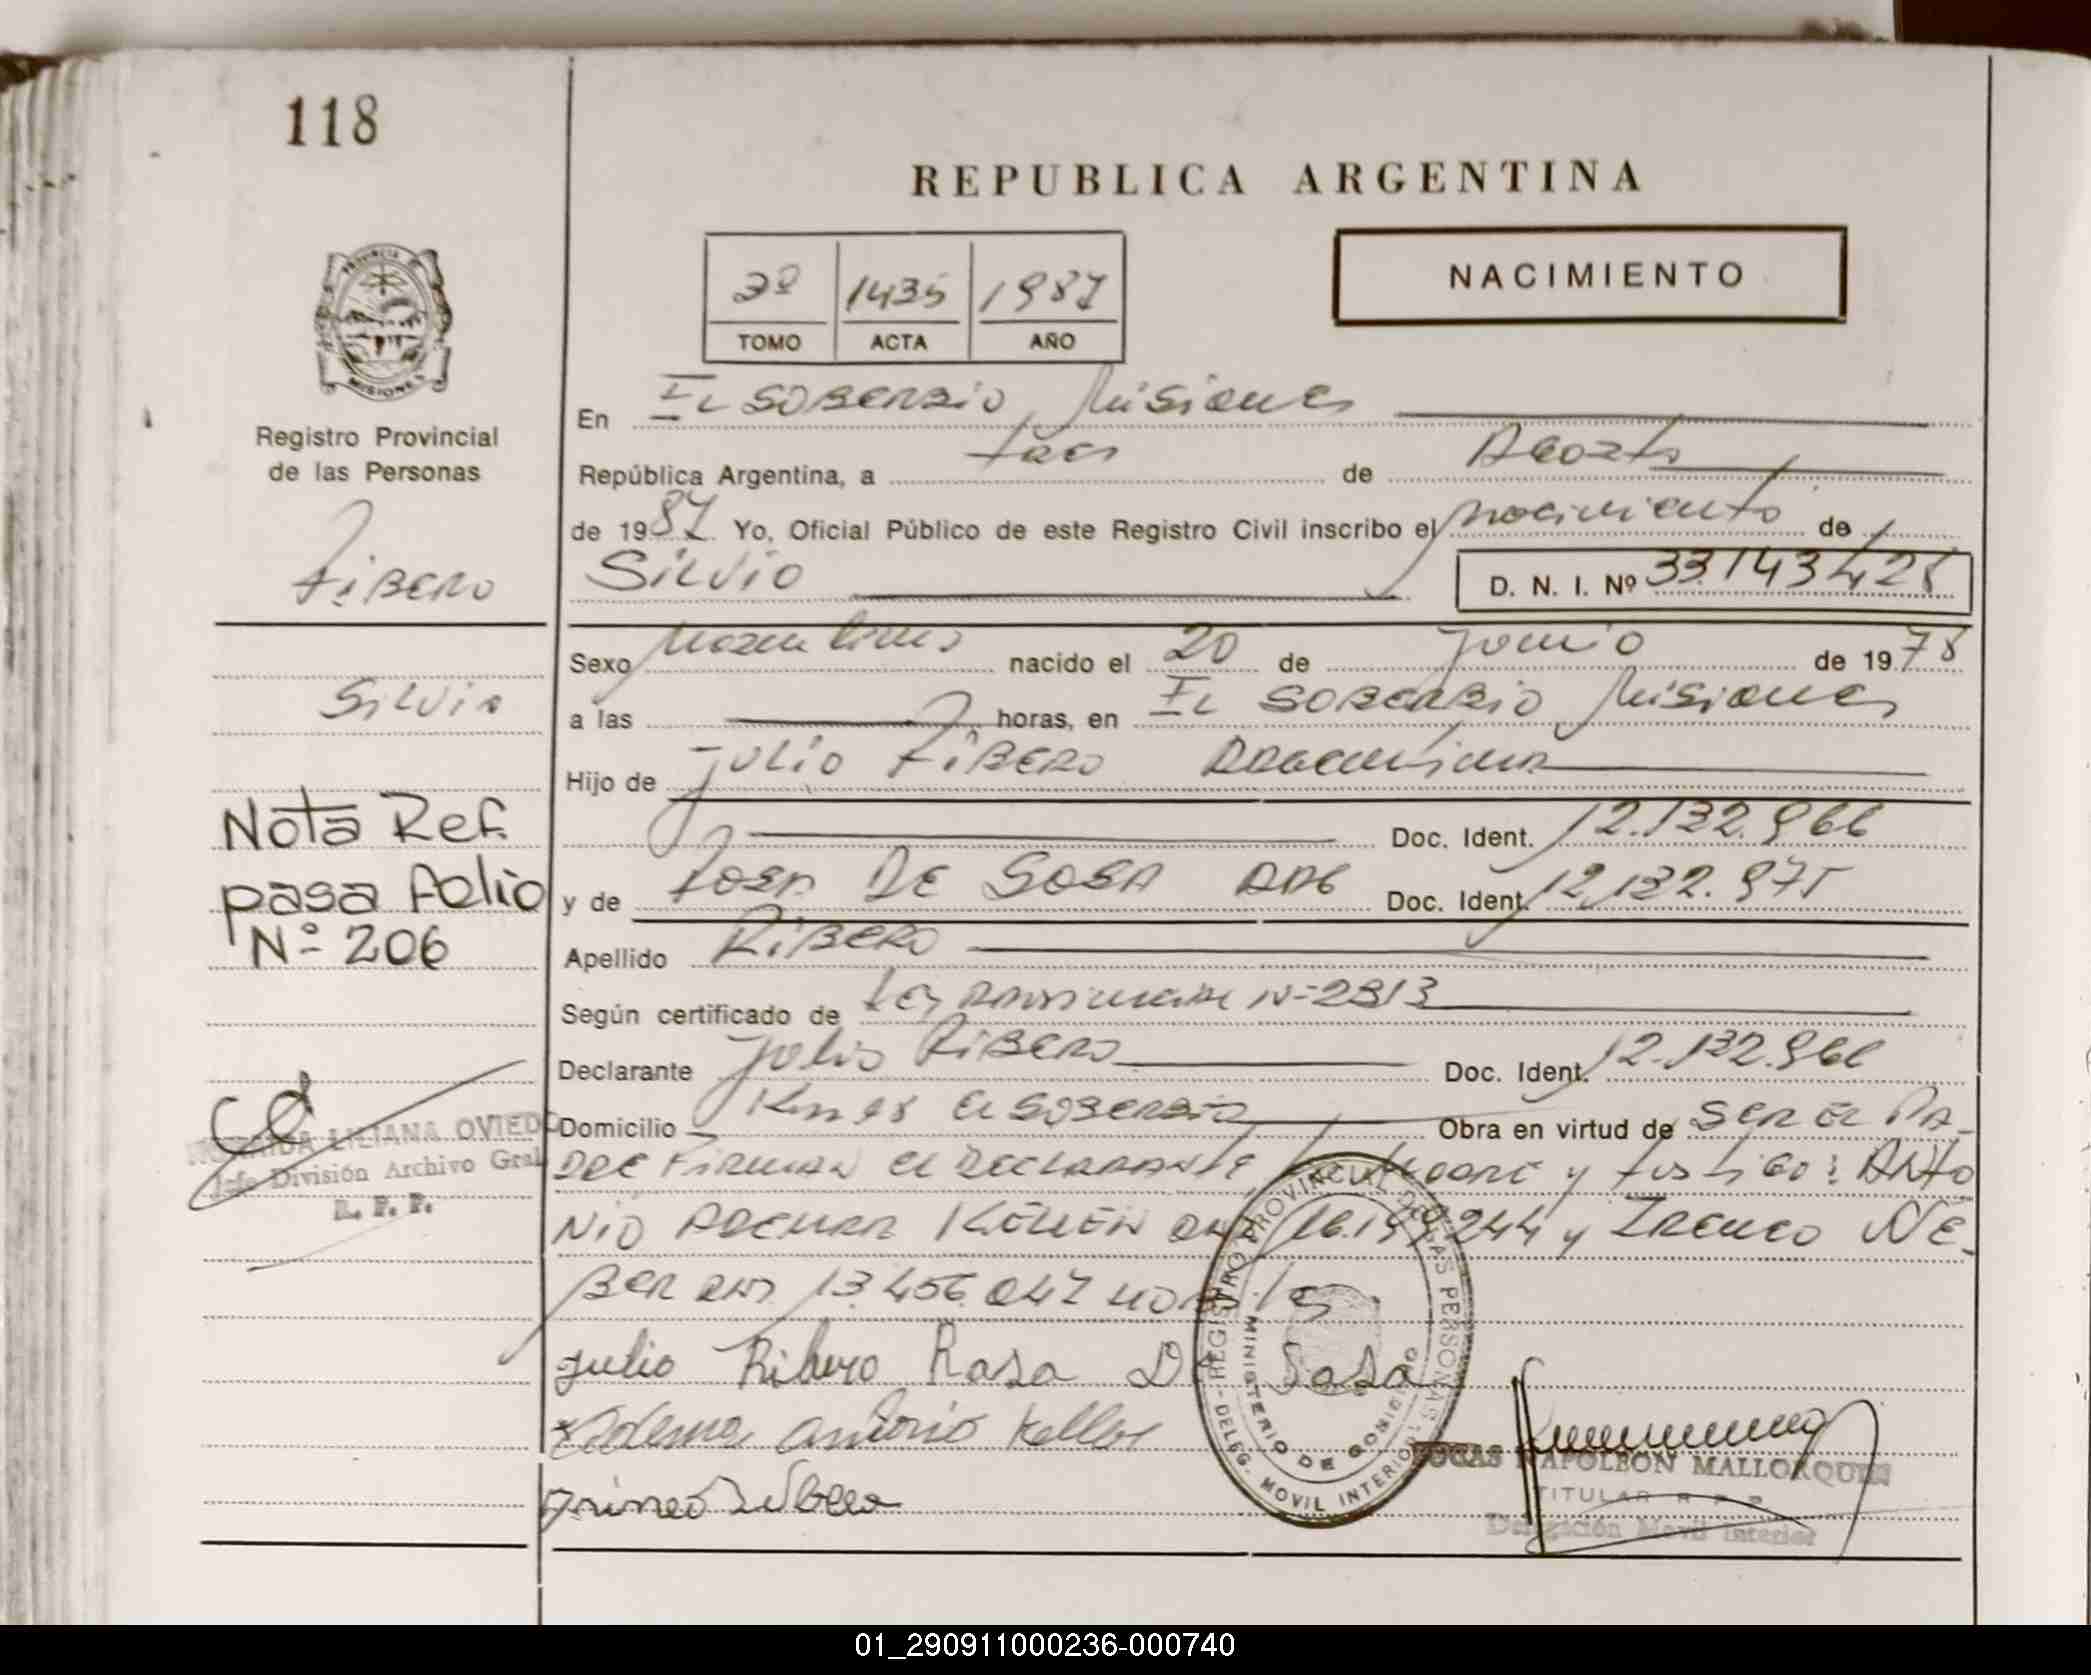 118
REPUBLICA ARGENTINA
2º 1435 1987
TOMO ACTA AÑO
NACIMIENTO
PROVINCIA DE MISIONES
Registro Provincial
de las Personas
Ribero
Silvio
Nota Ref.
pasa folio
Nº 206
LILIANA OVIEDO
Jefe División Archivo Gral
R. P. P.
En El Soberbio Misiones
República Argentina, a tres de Agosto
de 1987 Yo, Oficial Público de este Registro Civil inscribo el nacimiento de
Silvio D. N. I. Nº 33.143.425
Sexo Masculino nacido el 20 de Junio de 1978
a las horas, en El Soberbio Misiones
Hijo de Julio Ribero Argentina
Doc. Ident. 12.132.966
y de Rosa De Sosa ARG Doc. Ident. 12.132.975
Apellido Ribero
Según certificado de Ley Nº 2813
Declarante Julio Ribero Doc. Ident. 12.132.966
Domicilio El Soberbio Obra en virtud de ser el pa-
dre Firman el declarante la madre y testigos: Anto
nio Ademar Keller 16.199.244 y Ireneo We-
ber 13.456.047
Julio Ribero Rosa De Sosa
Ademar Antonio Keller
REGISTRO PROVINCIAL DE LAS PERSONAS
MINISTERIO DE GOBIERNO
DELEG. MOVIL INTERIOR
LUCAS NAPOLEON MALLORQUIN
TITULAR R P P
Delegación Movil Interior
01_290911000236-000740